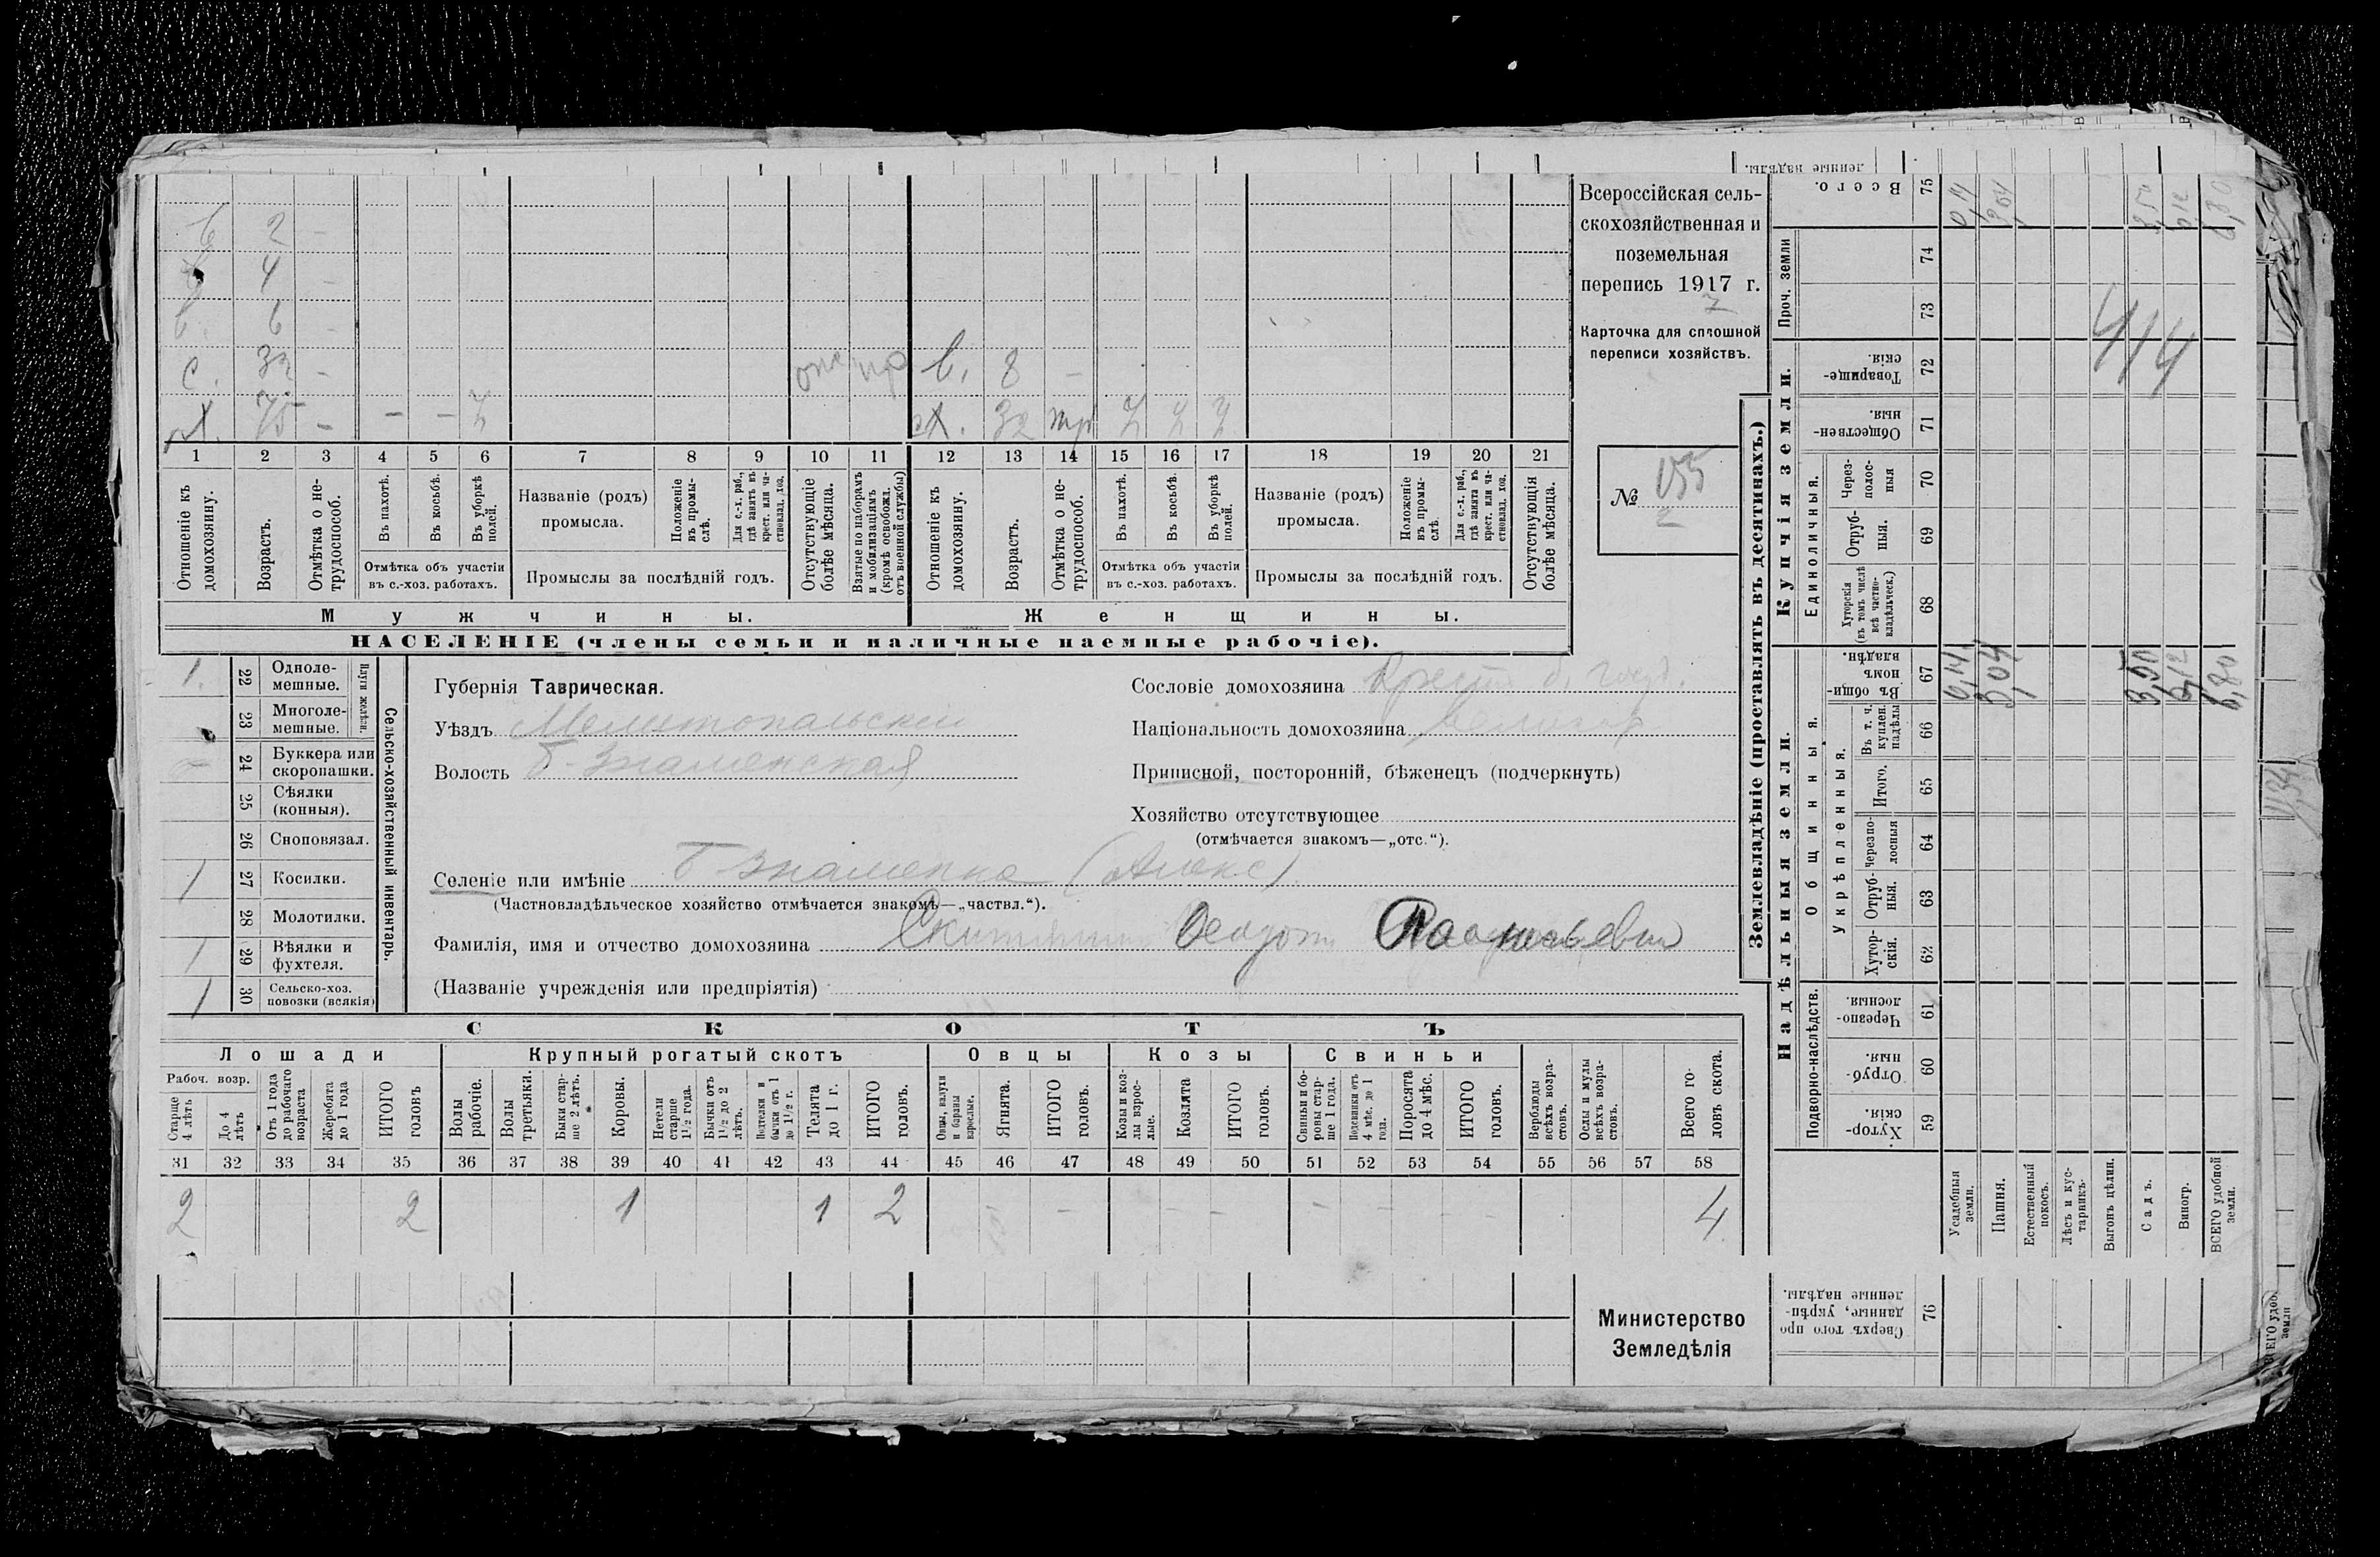 Всероссійская сель-
скохозяйственная и
поземельная
перепись 1917 г.
7
Карточка для сплошной
переписи хозяйствъ.
№ 155
2
в 2 -
в 4 -
в. 6 -
с. 32 - отс пр в. 8 -
рд. 75 - - - 7 сх. 32 тр 7 7 7
1 2 3 4 5 6 7 8 9 10 11 12 13 14 15 16 17 18 19 20 21
Отношеніе къ домохозяину.
Возрастъ.
Отмѣтка о не-трудоспособ.
Въ пахотѣ.
Въ косьбѣ.
Въ уборкѣ полей.
Отмѣтка объ участіи
въ с.-хоз. работахъ.
Названіе (родъ)
промысла.
Положеніе въ промы-слѣ.
Для с.-х. раб., гдѣ занятъ въ крест. или ча-стновлад. хоз.
Промыслы за послѣдній годъ.
Отсутствующіе болѣе мѣсяца.
Взятые по наборамъ и мобилизаціямъ (кромѣ освобожд. отъ военной службы)
Отношеніе къ домохозяину.
Возрастъ.
Отмѣтка о не-трудоспособ.
Въ пахотѣ.
Въ косьбѣ.
Въ уборкѣ полей.
Отмѣтка объ участіи
въ с.-хоз. работахъ.
Названіе (родъ)
промысла.
Положеніе въ промы-слѣ.
Для с.-х. раб., гдѣ занята въ крест. или ча-стновлад. хоз.
Промыслы за послѣдній годъ.
Отсутствующія болѣе мѣсяца.
Мужчины. Женщины.
НАСЕЛЕНІЕ (члены семьи и наличные наемные рабочіе).
1. 22 Одноле-мешные.
23 Многоле-мешные.
Плуги желѣзн.
24 Буккера или скоропашки.
25 Сѣялки (конныя).
26 Сноповязал.
1 27 Косилки.
28 Молотилки.
1 29 Вѣялки и фухтеля.
1 30 Сельско-хоз. повозки (всякія)
Сельско-хозяйственный инвентарь.
Губернія Таврическая.
Уѣздъ Мелитопальскій
Волость Б-Знаменская
Сословіе домохозяина Крест. б. госуд.
Національность домохозяина великор
Приписной, посторонній, бѣженецъ (подчеркнуть)
Хозяйство отсутствующее
(отмѣчается знакомъ—„отс.“).
Селеніе или имѣніе Б Знаменка (Алекс)
(Частновладѣльческое хозяйство отмѣчается знакомъ—„частвл.“).
Фамилія, имя и отчество домохозяина Федотъ
(Названіе учрежденія или предпріятія)
СКОТЪ
Лошади Крупный рогатый скотъ Овцы Козы Свиньи
Рабоч. возр.
Старше 4 лѣтъ
До 4 лѣтъ
Отъ 1 года до рабочаго возраста
Жеребята до 1 года
ИТОГО головъ
Волы рабочіе.
Волы третьяки.
Быки стар-ше 2 лѣтъ.
Коровы.
Нетели старше 1½ года.
Бычки отъ 1½ до 2 лѣтъ.
Подтелки и бычки отъ 1 до 1½ г.
Телята до 1 г.
ИТОГО головъ.
Овцы, валухи и бараны взрослые.
Ягнята.
ИТОГО головъ.
Козы и коз-лы взрос-лые.
Козлята
ИТОГО головъ.
Свиньи и бо-ровы стар-ше 1 года.
Подсвинки отъ 4 мѣс. до 1 года.
Поросята до 4 мѣс.
ИТОГО головъ.
Верблюды всѣхъ возра-стовъ.
Ослы и мулы всѣхъ возра-стовъ.
Всего го-ловъ скота.
31 32 33 34 35 36 37 38 39 40 41 42 43 44 45 46 47 48 49 50 51 52 53 54 55 56 57 58
2 2 1 1 2 - - - - - - - - 4
Министерство
Земледѣлія
Землевладѣніе (проставлять въ десятинахъ.)
Надѣльныя земли. Купчія земли. Проч. земли
Подворно-наслѣдств.
Общинныя.
Укрѣпленныя.
Единоличныя.
Хутор-скія. 59
Отруб-ныя. 60
Черезпо-лосныя. 61
Хутор-скія. 62
Отруб-ныя. 63
Черезпо-лосныя 64
Итого. 65
Въ т. ч. куплен. надѣлы 66
Въ общин-номъ владѣн. 67
Хуторскія (въ томъ числѣ всѣ частно-владѣльческ.) 68
Отруб-ныя. 69
Через-полос-ныя 70
Обществен-ныя. 71
Товарище-скія. 72
73
74
Всего. 75
Сверхъ того про-данные, укрѣп-ленные надѣлы. 76
Усадебныя земли. 0,14 0,14
Пашня. 3,04 3,04
Естественный покосъ.
Лѣсъ и кус-тарникъ.
Выгонъ цѣлин.
Садъ. 3,50 3,50
Виногр. 0,12 0,12
ВСЕГО удобной земли. 6,80 6,80
414
ленные надѣлы.
11,34
ВСЕГО удоб. земли